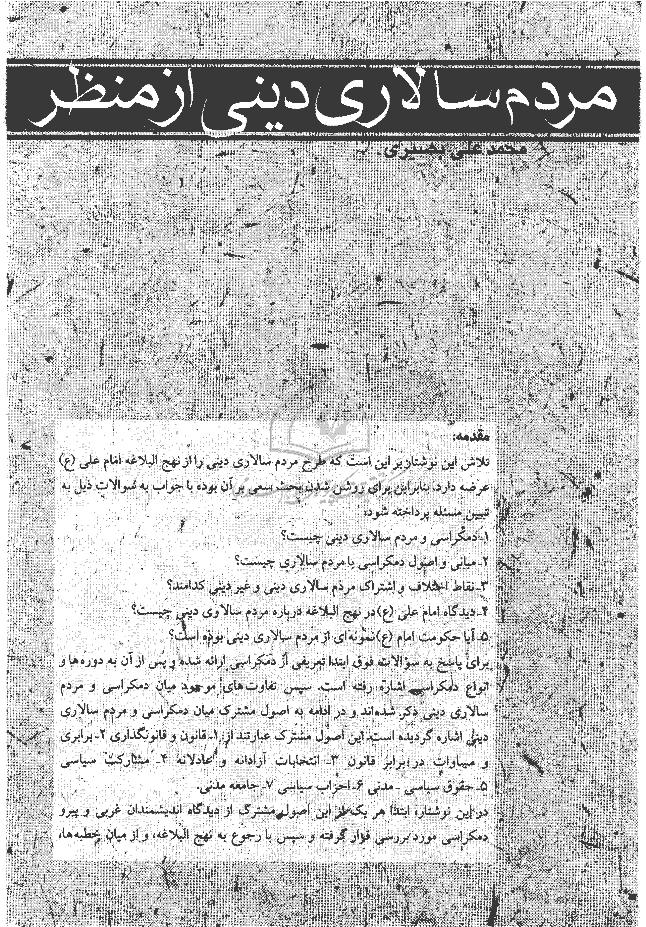 مردم سالاری دینی از منظر
محمد علی بصیری
مقدمه:
تلاش این نوشتار بر این است که طرح مردم سالاری دینی را از نهج البلاغه امام علی (ع)
عرضه دارد. بنابراین برای روشن شدن بحث سعی بر آن بوده با جواب به سوالات ذیل به
تبیین مسئله پرداخته شود.
۱- دمکراسی و مردم سالاری دینی چیست؟
۲- مبانی و اصول دمکراسی با مردم سالاری چیست؟
۳- نقاط اختلاف و اشتراک مردم سالاری دینی و غیر دینی کدامند؟
۴- دیدگاه امام علی (ع) در نهج البلاغه درباره مردم سالاری دینی چیست؟
۵- آیا حکومت امام (ع) نمونه ای از مردم سالاری دینی بوده است؟
برای پاسخ به سؤالات فوق ابتدا تعریفی از دمکراسی ارائه شده و پس از آن به دوره‌ها و
انواع دمکراسی اشاره رفته است. سپس تفاوت‌های موجود میان دمکراسی و مردم
سالاری دینی ذکر شده‌اند و در ادامه به اصول مشترک میان دمکراسی و مردم سالاری
دینی اشاره گردیده است. این اصول مشترک عبارتند از: ۱- قانون و قانونگذاری ۲- برابری
و مساوات در برابر قانون ۳- انتخابات آزادانه و عادلانه ۴- مشارکت سیاسی
۵- حقوق سیاسی - مدنی ۶- احزاب سیاسی ۷- جامعه مدنی.
در این نوشتار، ابتدا هر یک از این اصول مشترک از دیدگاه اندیشمندان غربی و پیرو
دمکراسی مورد بررسی قرار گرفته و سپس با رجوع به نهج البلاغه، و از میان خطبه‌ها،